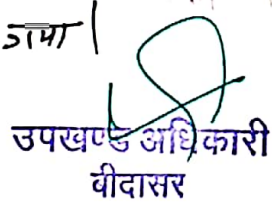 गया।
उपखण्ड अधिकारी
बीदासर